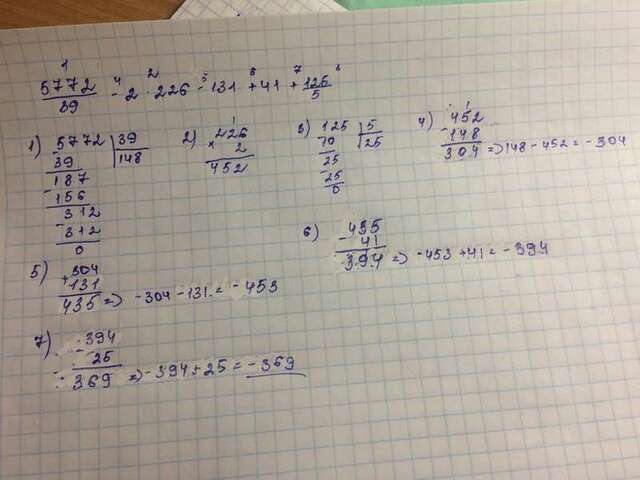 1 4 2 5 6 7
5772/39 - 2 · 226 - 131 + 41 + 125/5
1) 5772 | 39
39 | 148
187
- 156
312
- 312
0
2) 226
× 2
452
3) 125 | 5
10 | 25
25
25
0
4) 452
- 148
304 => 148 - 452 = - 304
5) + 304
131
435 => - 304 - 131 = - 453
6) - 435
41
394 => - 453 + 41 = - 394
7) - 394
25
369 => - 394 + 25 = - 369